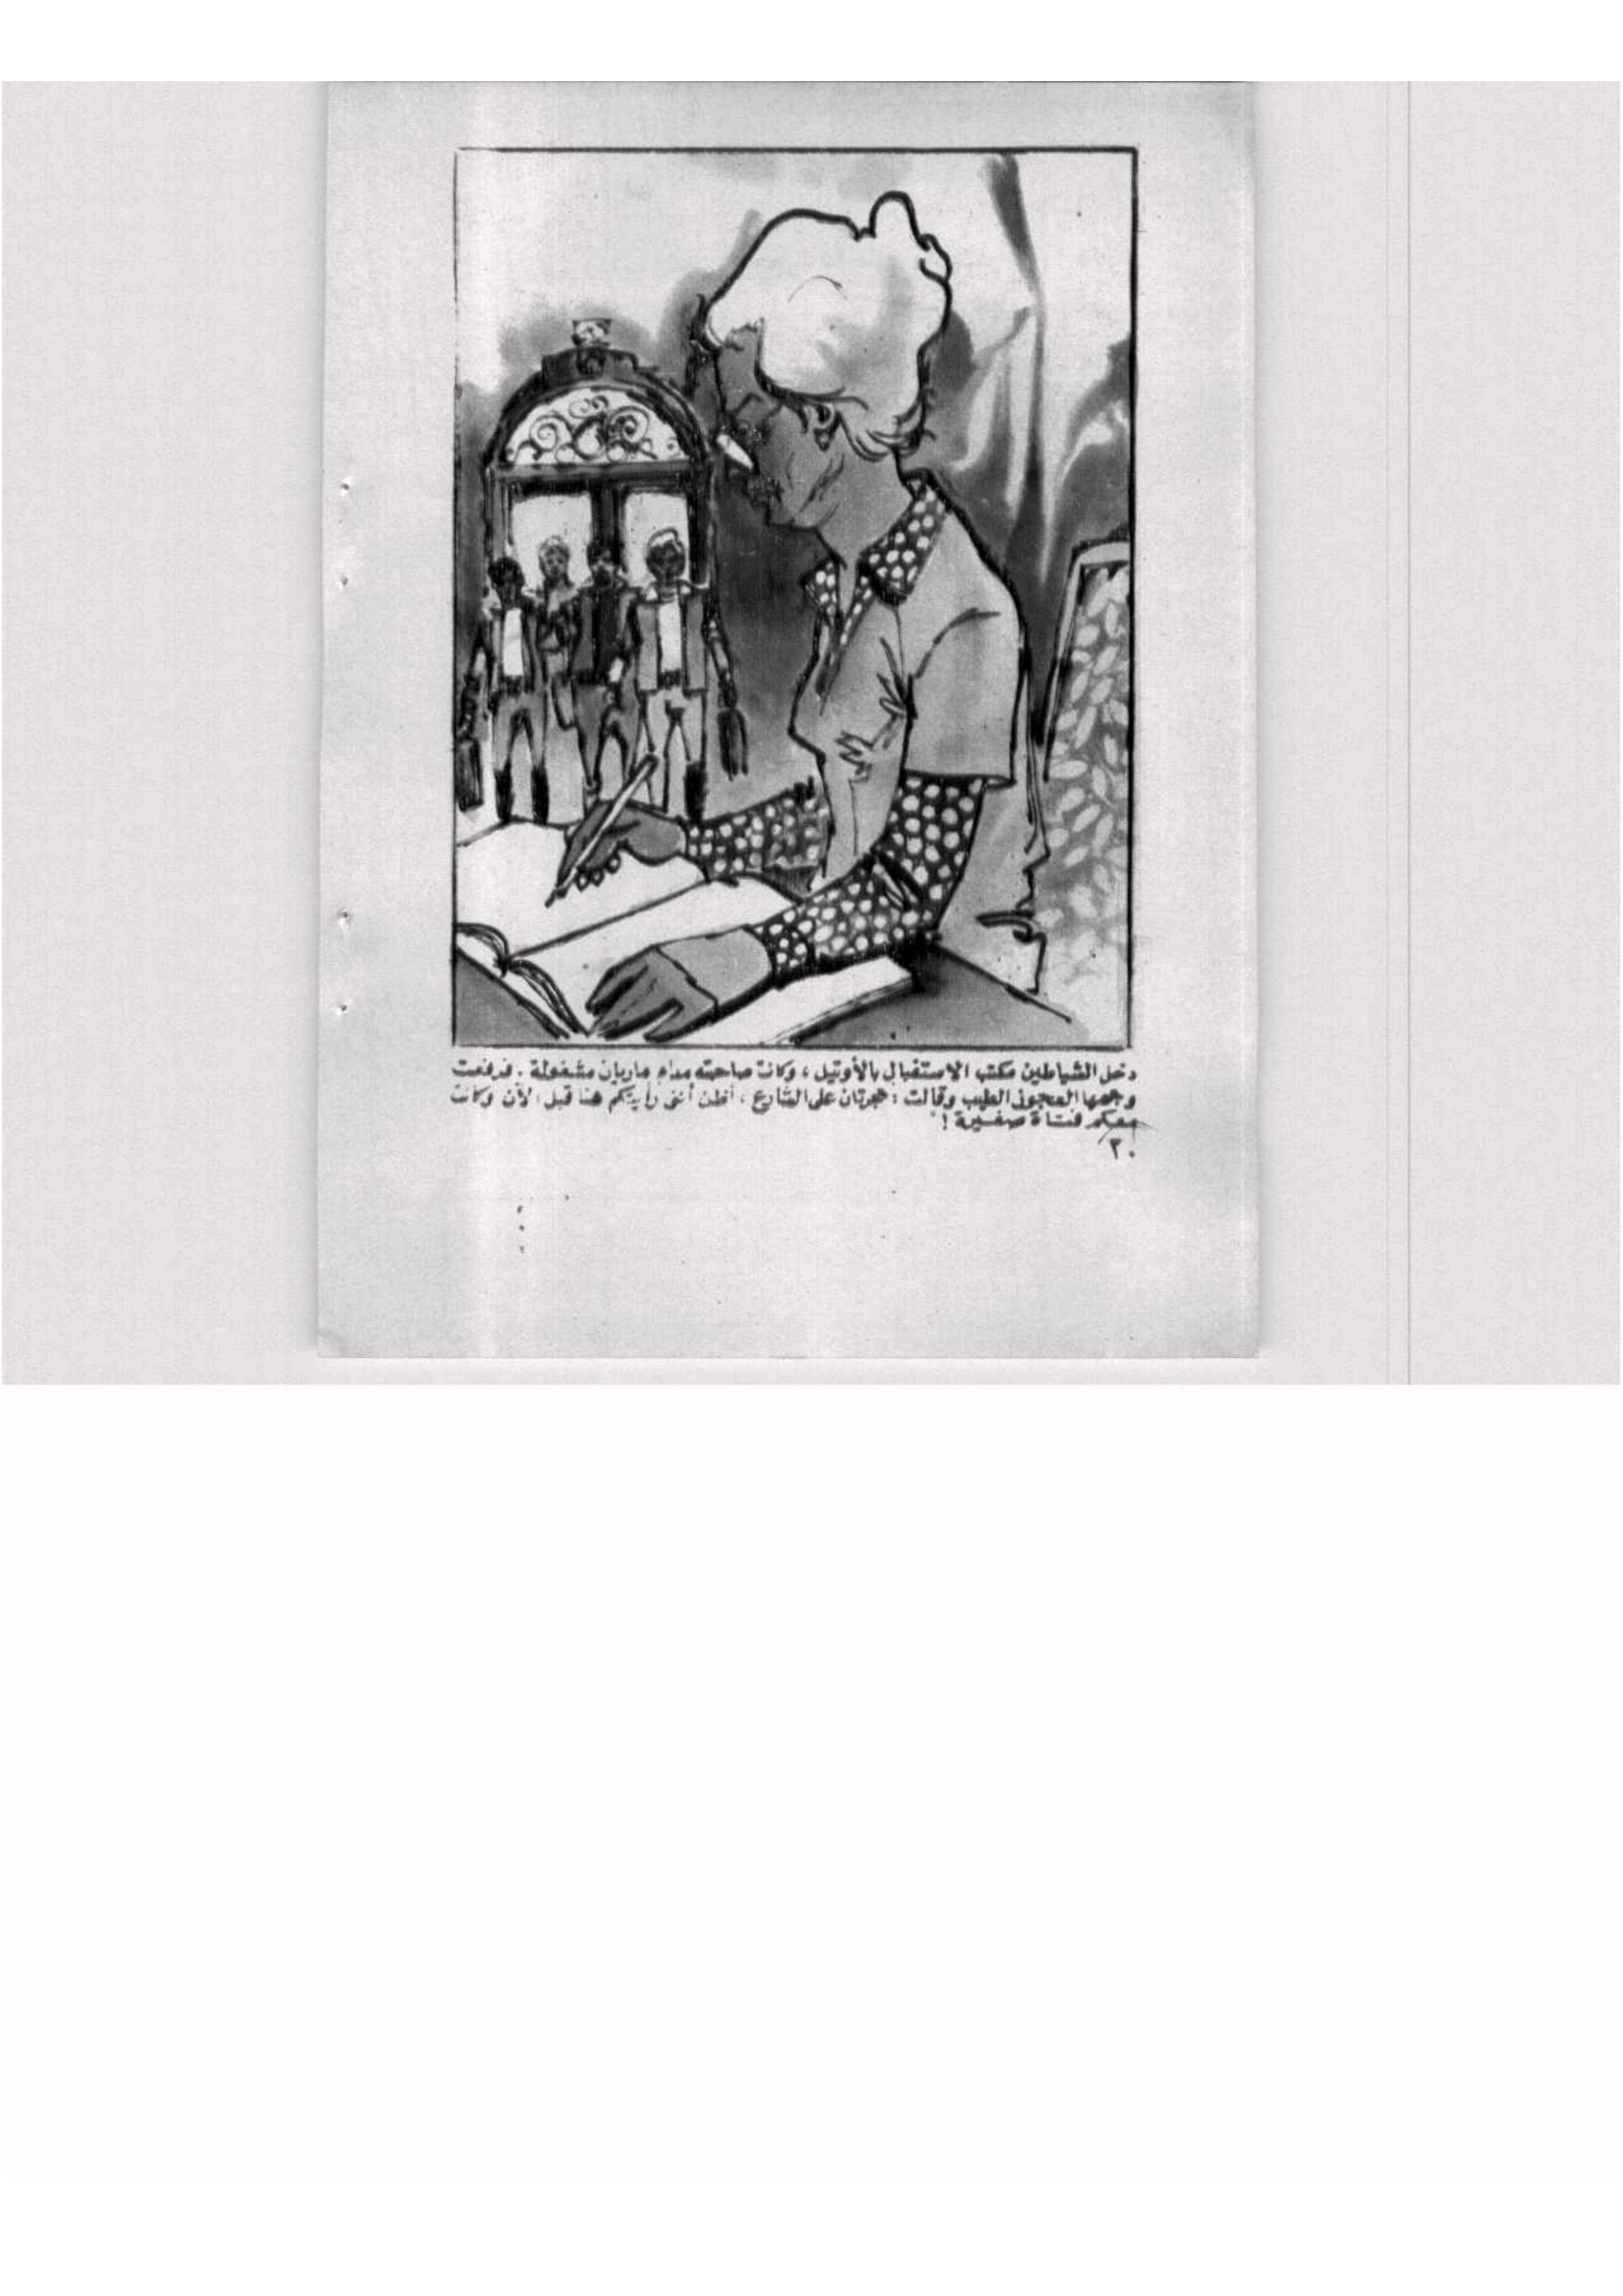 دخل الشياطين مكتب الاستقبال بالأوتيل، وكانت صاحبته مدام ماريان مشغولة. فرفعت
وجهها العجوز الطيب وقالت: حجرتان على الشارع، أظن أننى رأيتكم هنا قبل الآن وكانت
معكم فتاة صغيرة!
٢٠